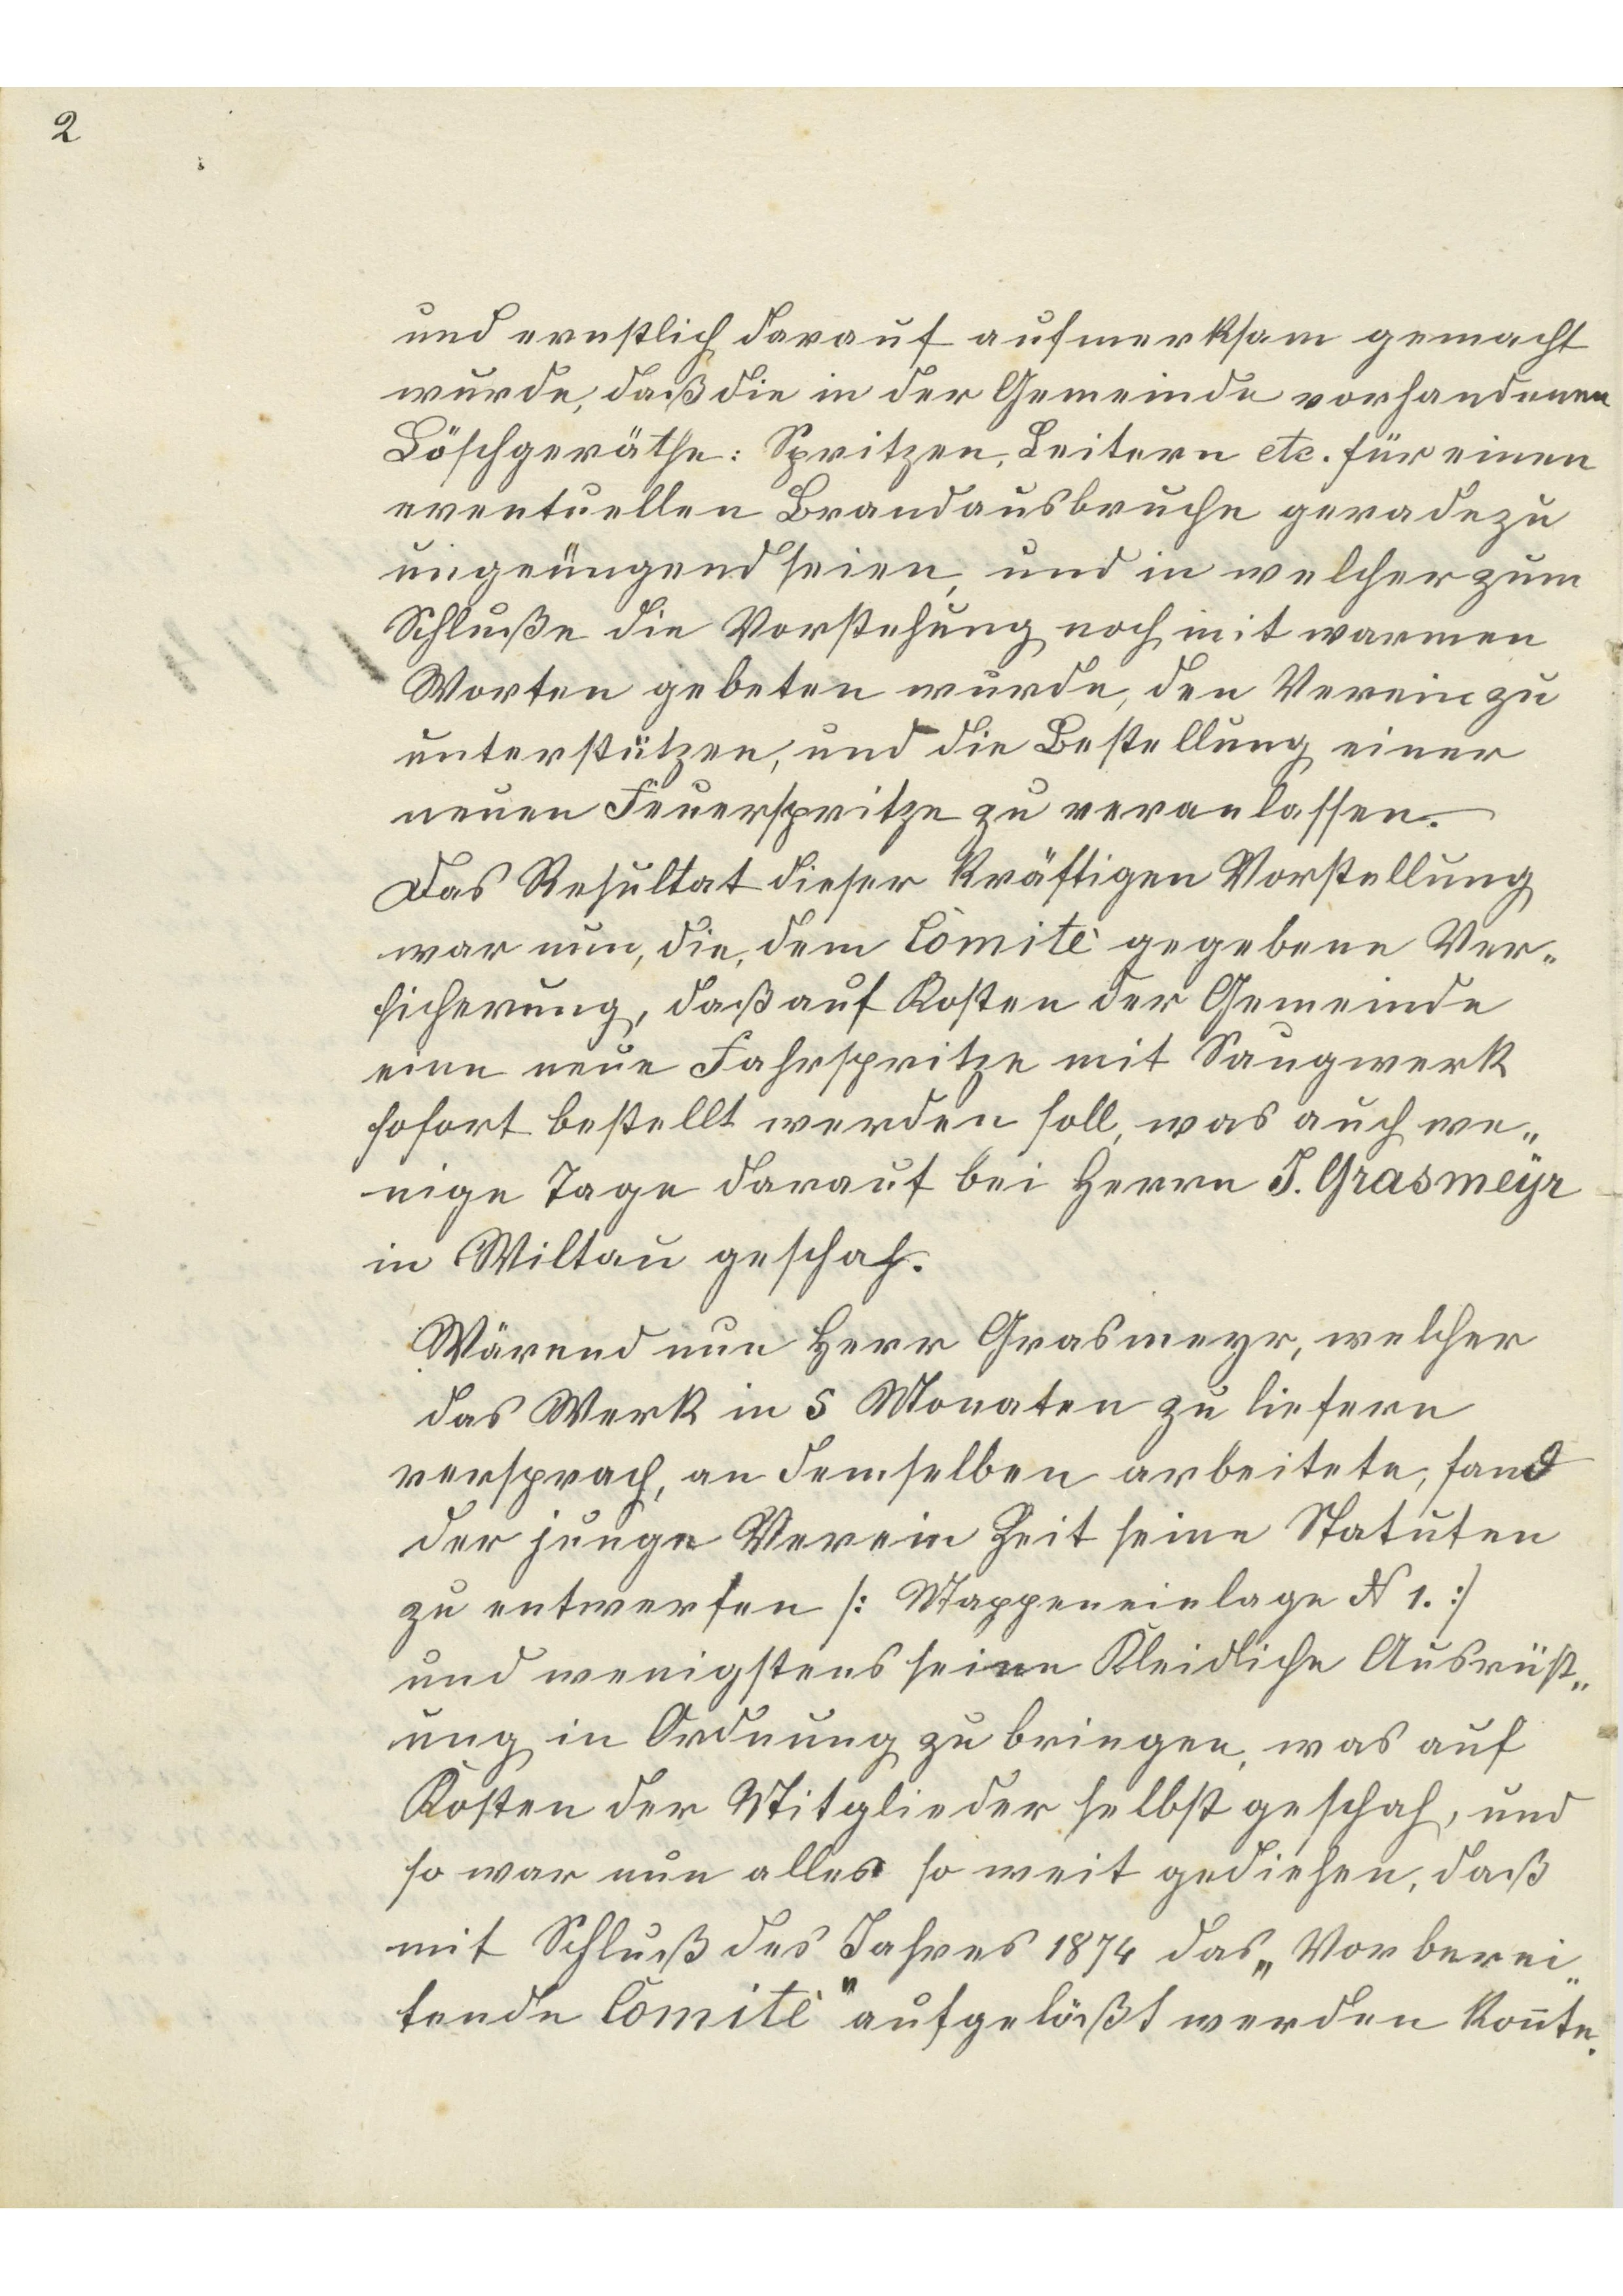 2
und ernstlich darauf aufmerksam gemacht
wurde, daß die in der Gemeinde vorhandenen
Löschgeräthe: Spritzen, Leitern etc. für einen
eventuellen Brandausbruche geradezu
ungenügend seien, und in welcher zum
Schluße die Vorstehung noch mit warmen
Worten gebeten wurde, den Verein zu
unterstützen, und die Bestellung einer
neuen Feuerspritze zu veranlassen.
Das Resultat dieser kräftigen Vorstellung
war nun, die, dem Comitè gegebene Ver„
sicherung, daß auf Kosten der Gemeinde
eine neue Fahrspritze mit Saugwerk
sofort bestellt werden soll, was auch we„
nige Tage darauf bei Herrn J. Grasmeÿr
in Wiltau geschah.
Wärend nun Herr Grasmeyr, welcher
das Werk in 5 Monaten zu liefern
versprach, an demselben arbeitete, fand
der junge Verein Zeit seine Statuten
zu entwerfen /: Mappeneinlage N 1. :/
und wenigstens seine Kleidliche Ausrüst„
ung in Ordnung zu bringen, was auf
Kosten der Mitglieder selbst geschah, und
so war nun alles so weit gediehen, daß
mit Schluß des Jahres 1874 das „Vorberei„
tende Comitè" aufgelößt werden kon̄te.